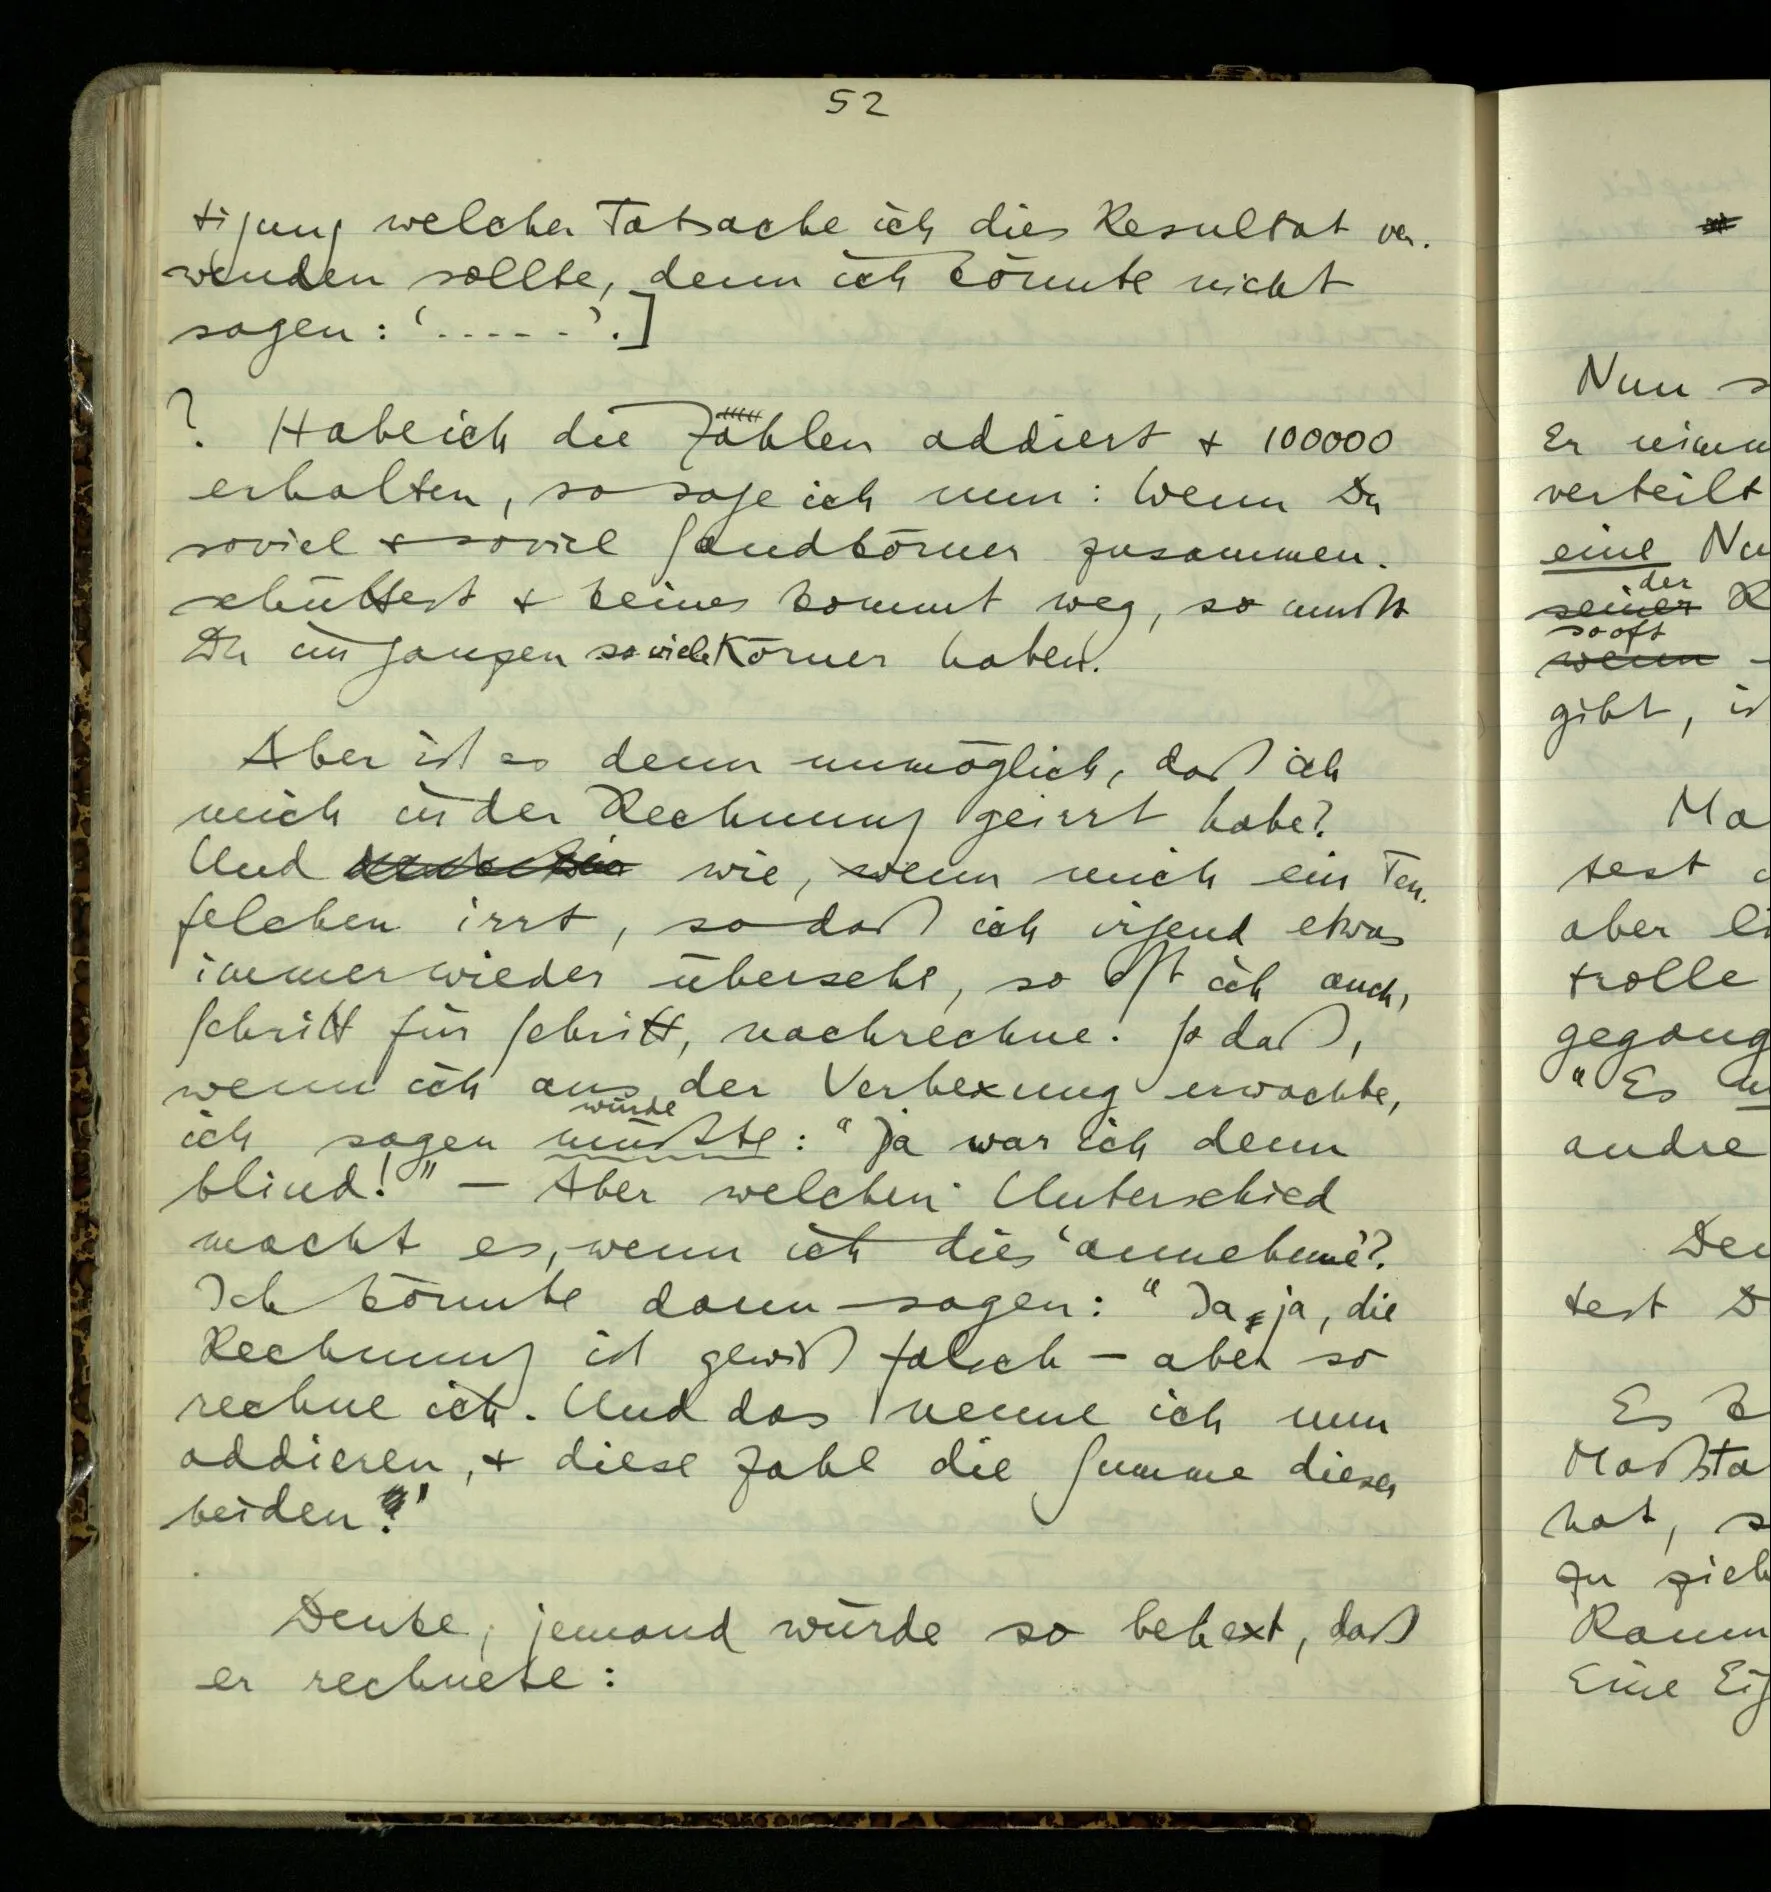 52
tigung welcher Tatsache ich dies Resultat ver-
wenden sollte, denn ich könnte nicht
sagen: ‘.....’.]
? Habe ich die Zahlen addiert & 100000
erhalten, so sage ich nun: Wenn Du
soviel & soviel Sandkörner zusammen-
schüttest & keines kommt weg, so mußt
Du im ganzen soviele Körner haben.
Aber ist es denn unmöglich, daß ich
mich in der Rechnung geirrt habe?
Und wie, wenn mich ein Teu-
felchen irrt, sodaß ich irgend etwas
immer wieder übersehe, so oft ich auch,
Schritt für Schritt, nachrechne. So daß,
wenn ich aus der Verhexung erwachte,
würde
ich sagen müßte: “Ja war ich denn
blind!” – Aber welchen Unterschied
macht es, wenn ich dies ‘annehme’?
Ich könnte dann sagen: “Ja, ja, die
Rechnung ist gewiß falsch – aber so
rechne ich. Und das nenne ich nun
addieren, & diese Zahl die Summe dieser
beiden.”
Denke, jemand würde so behext, daß
er rechnete:
Nun s
Er nimm
verteilt
eine Nu
der
seiner R
so oft
wenn –
gibt, is
Ma
test d
aber li
trolle
gegang
“Es m
andre
Den
test D
Es k
Maßsta
hat, s
zu zieh
Raum
Eine Eig